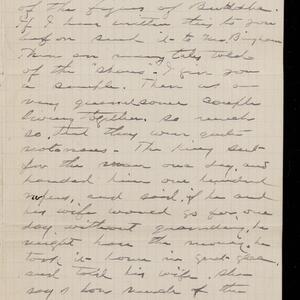 of the figures of Buddha.
If I have written this to you
before send it to Mrs. Bingham
There are many tales told
of the "shoes". I give you
a sample. There was a
very quarrelsome couple
living together. So much
so, that they were quite
notorious - The king sent
for the man one day, and
handed him one hundred
rupees, and said, if he and
his wife would go for one
day without quarreling, he
might have the money. he
took it home in great glee,
and told his wife. She
say's how much of the